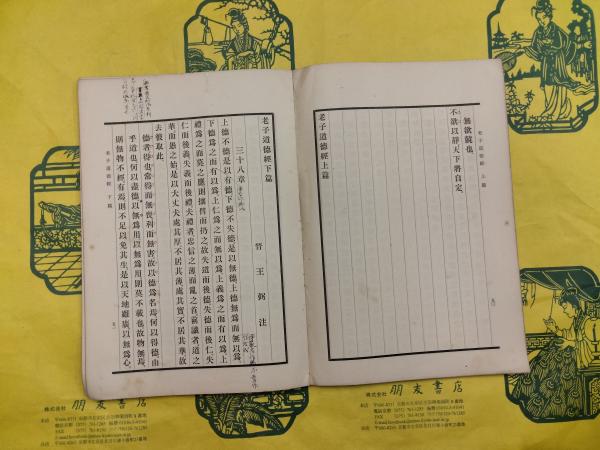 無欲競也
不欲以靜天下將自定
老子道德經上篇
老子道德經 上篇
老子道德經下篇
晉 王弼 注
三十八章
上德不德是以有德下德不失德是以無德上德無爲而無以爲
下德爲之而有以爲上仁爲之而無以爲上義爲之而有以爲上
禮爲之而莫之應則攘臂而扔之故失道而後德失德而後仁失
仁而後義失義而後禮夫禮者忠信之薄而亂之首前識者道之
華而愚之始是以大丈夫處其厚不居其薄處其實不居其華故
去彼取此
德者得也常得而無喪利而無害故以德爲名焉何以得德由
乎道也何以盡德以無爲用以無爲用則莫不載也故物無焉
則無物不經有焉則不足以免其生是以天地雖廣以無爲心
老子道德經 下篇
株式会社 朋友書店
株式会社 朋友書店